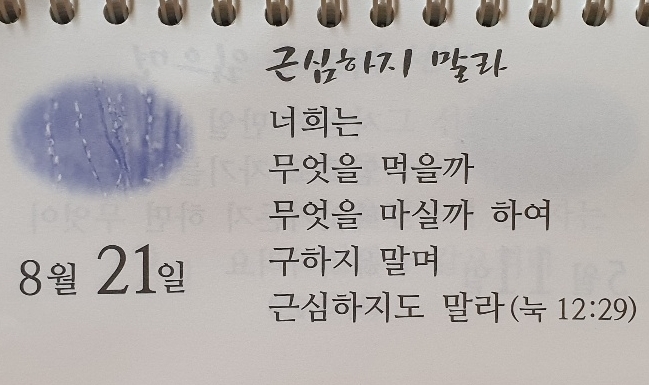 근심하지 말라
너희는
무엇을 먹을까
무엇을 마실까 하여
구하지 말며
근심하지도 말라(눅 12:29)
8월 21일